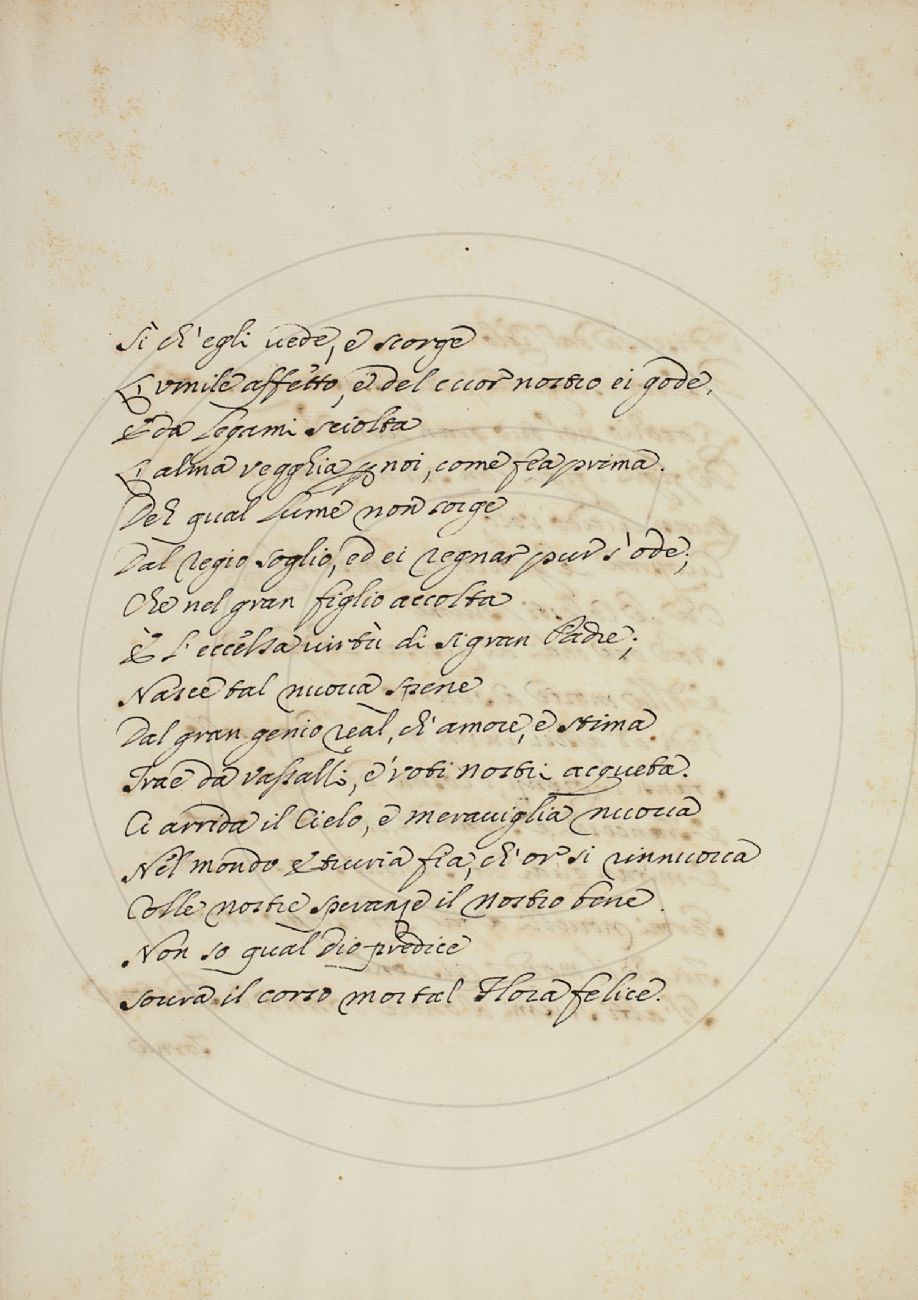 Sì ch'egli uede, e scorge
L'vmile affetto, e del cuor nostro ei gode,
E da Legami sciolta
L'alma vegghia p noi, come fea prima.
Deh qual Lume non sorge
Dal regio soglio, ed ei regnar pur s'ode;
Che nel gran figlio accolta
È L'eccelsa uirtù di sì gran Padre;
Nasce tal nuoua spene
Dal gran genio real, ch'amore, e stima
Trae da vassalli, e' voti nostri acqueta.
Ci arrida il Cielo, e merauiglia nuoua
Nel mondo Etruria fia, ch'or si rinnuoua
Colle nostre speranze il nostro bene.
Non so qual Dio predice
Soura il corso mortal Flora felice.